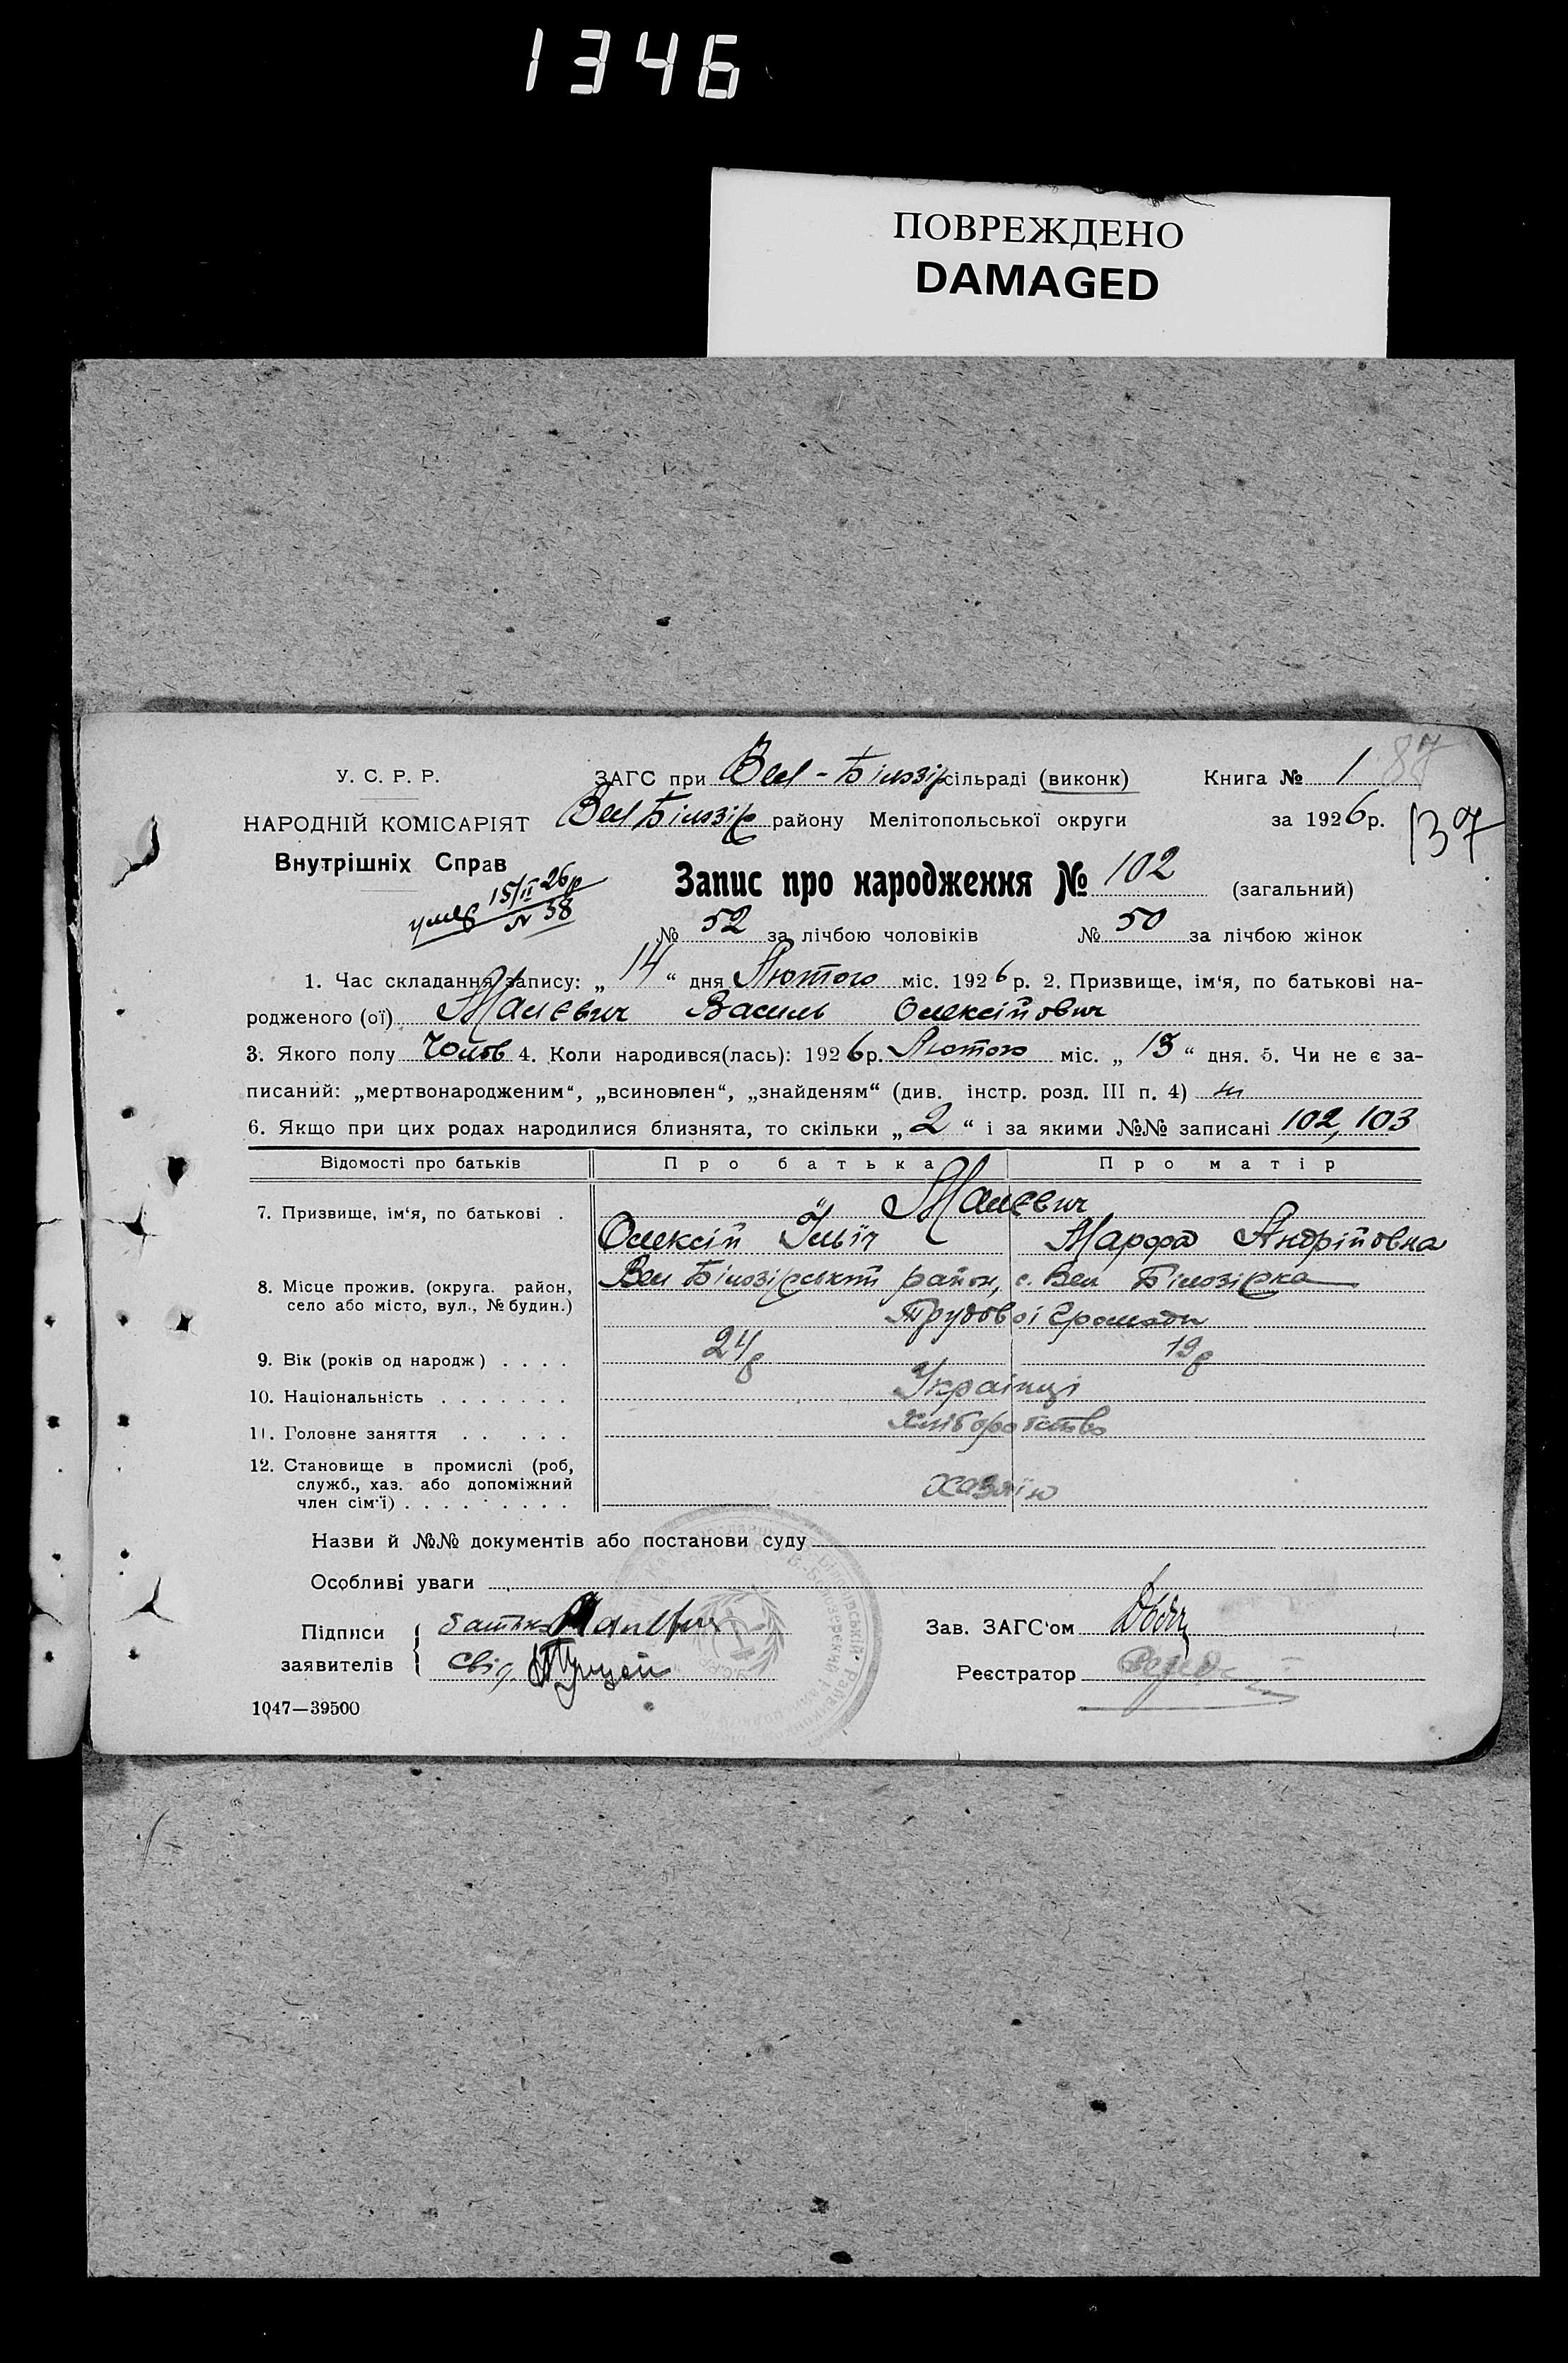 1346
ПОВРЕЖДЕНО
DAMAGED
87
У. С. Р. Р.
ЗАГС при Вел-Білозір сільраді (виконк)
Книга № 1
НАРОДНІЙ КОМІСАРІЯТ
Вел Білозір району Мелітопольської округи
за 1926 р.
137
Внутрішніх Справ
умер 15/II 26р
N 38
Запис про народження № 102 (загальний)
№ 52 за лічбою чоловіків № 50 за лічбою жінок
1. Час складання запису: „ 14 “ дня Лютого міс. 1926 р. 2. Призвище, ім‘я, по батькові на-
родженого (ої) Малєвич Василь Олексійович
3. Якого полу Чолов 4. Коли народився(лась): 1926 р. Лютого міс. „ 13 “ дня. 5. Чи не є за-
писаний: „мертвонародженим“, „всиновлен“, „знайденям“ (див. інстр. розд. III п. 4)
6. Якщо при цих родах народилися близнята, то скільки „ 2 “ і за якими №№ записані 102, 103
Відомості про батьків
Про батька
Про матір
7. Призвище, ім‘я, по батькові .
Малєвич
Олексій Ільїч
Марфа Андріїовна
8. Місце прожив. (округа. район,
село або місто, вул., № будин.)
Вел Білозірський район, с. Вел Білозірка
Трудової Громади
9. Вік (років од народж) . . . .
24р
19р
10. Національність . . . . . . .
Українці
11. Головне заняття . . . . .
Хліборобство
12. Становище в промислі (роб,
служб., хаз. або допоміжний
член сім‘ї) . . . . . . . . .
Хазяїн
Назви й №№ документів або постанови суду
Особливі уваги
Підписи
заявителів
батько Малєвич
свід.
Зав. ЗАГС‘ом
Реєстратор
1047—39500